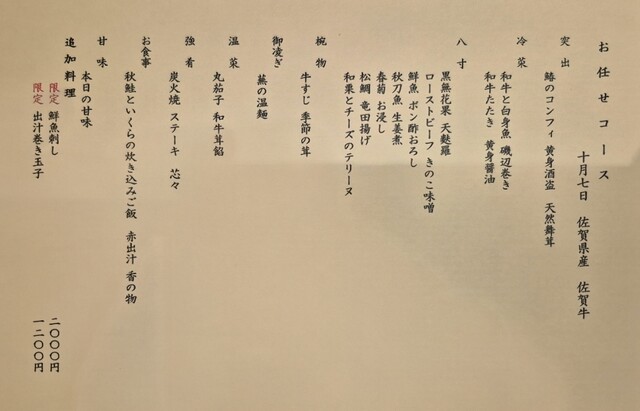 お任せコース
十月七日　佐賀県産　佐賀牛
突出
鰆のコンフィ　黄身酒盗　天然舞茸
冷菜
和牛と白身魚　磯辺巻き
和牛たたき　黄身醤油
八寸
黒無花果　天麩羅
ローストビーフ　きのこ味噌
鮮魚　ポン酢おろし
秋刀魚　生姜煮
春菊　お浸し
松鯛　竜田揚げ
和栗とチーズのテリーヌ
椀物
牛すじ　季節の茸
御凌ぎ
蕪の温麺
温菜
丸茄子　和牛茸餡
強肴
炭火焼　ステーキ　芯々
お食事
秋鮭といくらの炊き込みご飯　赤出汁　香の物
甘味
本日の甘味
追加料理
限定　鮮魚刺し　二〇〇〇円
限定　出汁巻き玉子　一二〇〇円